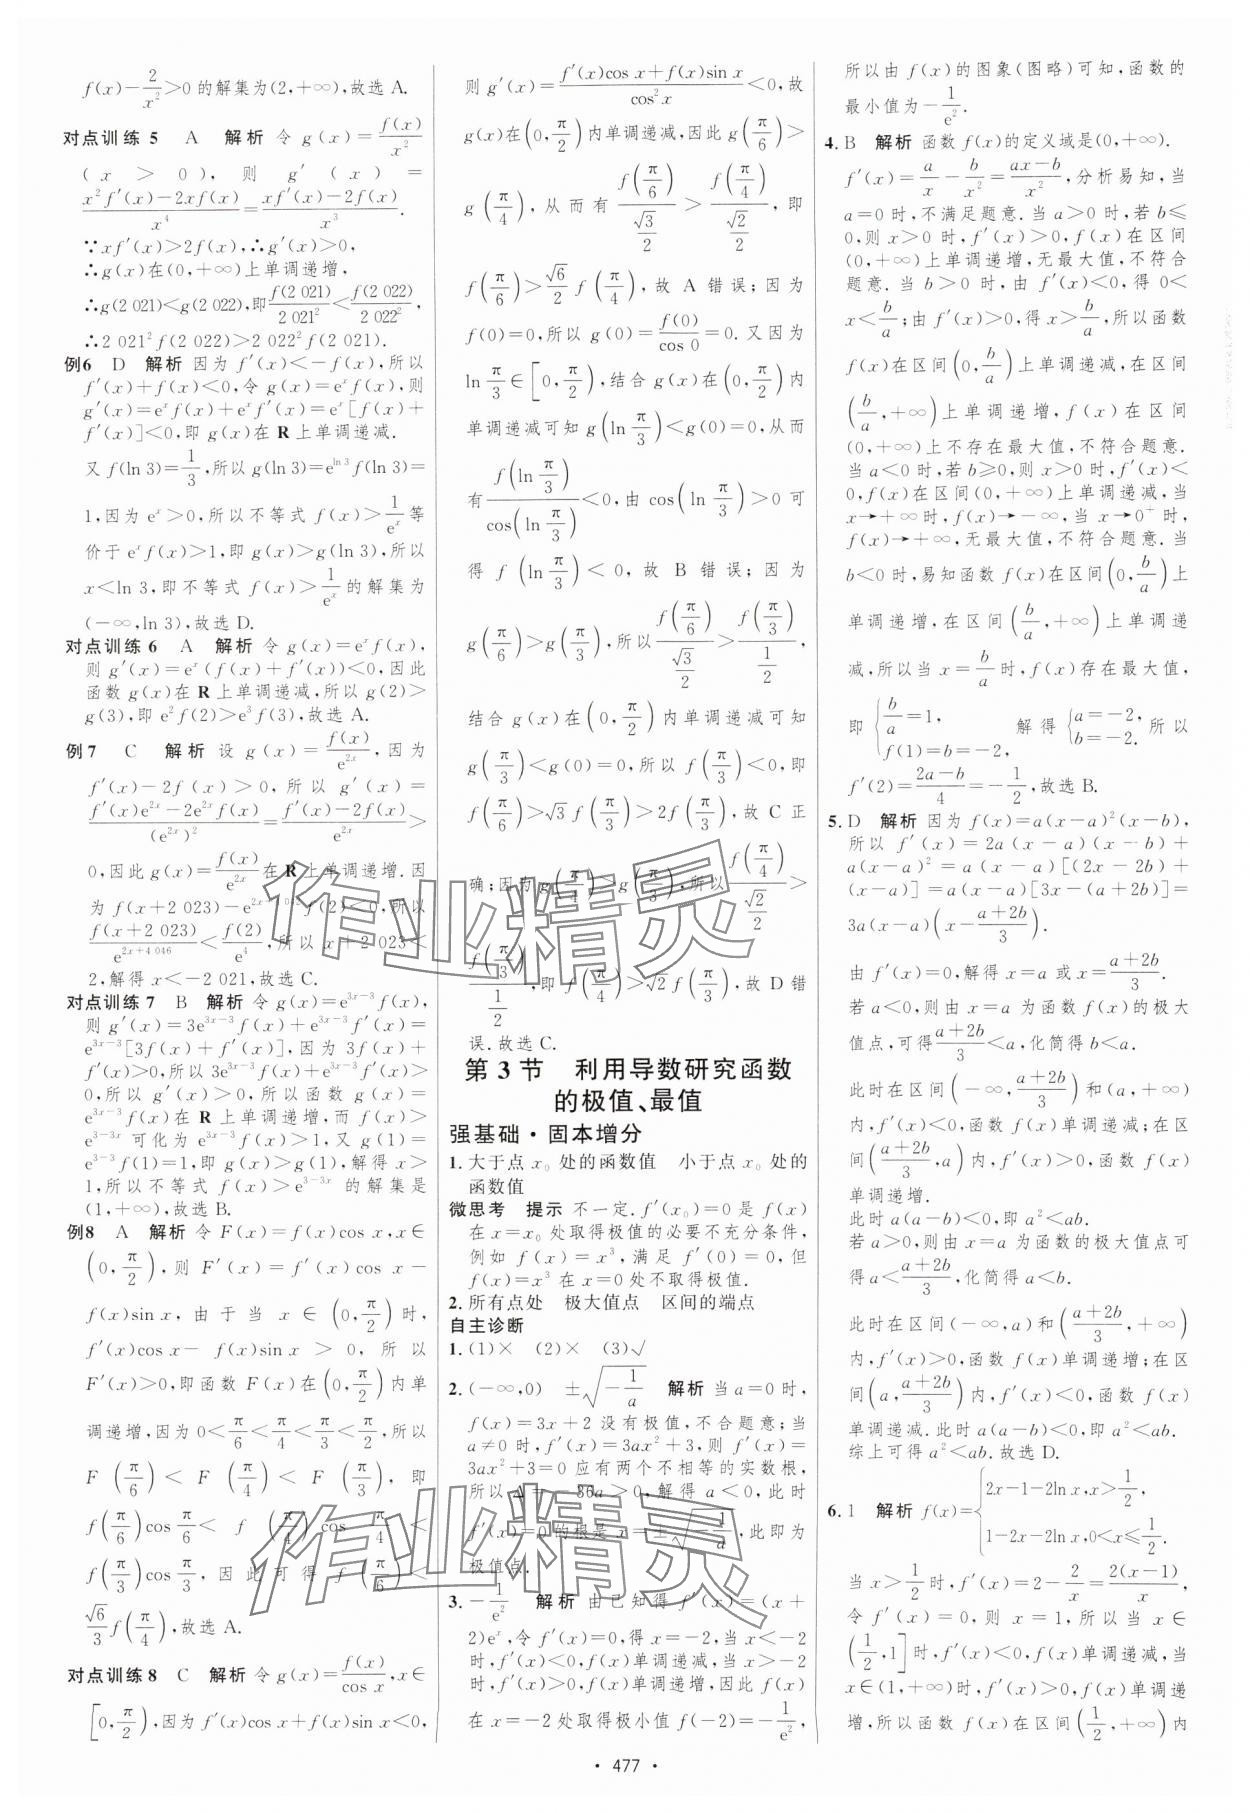 f(x)-2/x²>0的解集为(2,+∞),故选A.
对点训练5 A 解析 令g(x)=f(x)/x²
(x>0),则g′(x)=
(x²f′(x)-2xf(x))/x⁴=(xf′(x)-2f(x))/x³.
∵xf′(x)>2f(x),∴g′(x)>0,
∴g(x)在(0,+∞)上单调递增,
∴g(2 021)<g(2 022),即f(2 021)/2 021²<f(2 022)/2 022²,
∴2 021²f(2 022)>2 022²f(2 021).
例6 D 解析 因为f′(x)<-f(x),所以
f′(x)+f(x)<0,令g(x)=eˣf(x),则
g′(x)=eˣf(x)+eˣf′(x)=eˣ[f(x)+
f′(x)]<0,即g(x)在R上单调递减.
又f(ln 3)=1/3,所以g(ln3)=e^(ln 3)f(ln3)=
1,因为eˣ>0,所以不等式f(x)>1/eˣ等
价于eˣf(x)>1,即g(x)>g(ln 3),所以
x<ln 3,即不等式f(x)>1/eˣ的解集为
(-∞,ln 3),故选D.
对点训练6 A 解析 令g(x)=eˣf(x),
则g′(x)=eˣ(f(x)+f′(x))<0,因此
函数g(x)在R上单调递减,所以g(2)>
g(3),即e²f(2)>e³f(3),故选A.
例7 C 解析 设g(x)=f(x)/e^(2x),因为
f′(x)-2f(x)>0,所以g′(x)=
(f′(x)e^(2x)-2e^(2x)f(x))/(e^(2x))²=(f′(x)-2f(x))/e^(2x)>
0,因此g(x)=f(x)/e^(2x)在R上单调递增.因
为f(x+2 023)-e^(2x+4 042)f(2)<0,所以
f(x+2 023)/e^(2x+4 046)<f(2)/e⁴,所以x+2 023<
2,解得x<-2 021,故选C.
对点训练7 B 解析 令g(x)=e^(3x-3)f(x),
则g′(x)=3e^(3x-3)f(x)+e^(3x-3)f′(x)=
e^(3x-3)[3f(x)+f′(x)],因为3f(x)+
f′(x)>0,所以3e^(3x-3)f(x)+e^(3x-3)f′(x)>
0,所以g′(x)>0,所以函数g(x)=
e^(3x-3)f(x)在R上单调递增,而f(x)>
e^(3-3x)可化为e^(3x-3)f(x)>1,又g(1)=
e^(3-3)f(1)=1,即g(x)>g(1),解得x>
1,所以不等式f(x)>e^(3-3x)的解集是
(1,+∞),故选B.
例8 A 解析 令F(x)=f(x)cos x,x∈
(0,π/2),则F′(x)=f′(x)cos x-
f(x)sin x,由于当x∈(0,π/2)时,
f′(x)cos x-f(x)sin x>0,所以
F′(x)>0,即函数F(x)在(0,π/2)内单
调递增,因为0<π/6<π/4<π/3<π/2,所以
F(π/6)<F(π/4)<F(π/3),即
f(π/6)cos π/6<f(π/4)cos π/4<
f(π/3)cos π/3,因此可得f(π/6)<
√6/3 f(π/4),故选A.
对点训练8 C 解析 令g(x)=f(x)/cos x,x∈
[0,π/2),因为f′(x)cos x+f(x)sin x<0,
则g′(x)=(f′(x)cos x+f(x)sin x)/cos²x<0,故
g(x)在(0,π/2)内单调递减,因此g(π/6)>
g(π/4),从而有f(π/6)/(√3/2)>f(π/4)/(√2/2),即
f(π/6)>√6/2 f(π/4),故A错误;因为
f(0)=0,所以g(0)=f(0)/cos 0=0.又因为
ln π/3∈[0,π/2),结合g(x)在(0,π/2)内
单调递减可知g(ln π/3)<g(0)=0,从而
有f(ln π/3)/cos(ln π/3)<0,由cos(ln π/3)>0可
得f(ln π/3)<0,故B错误;因为
g(π/6)>g(π/3),所以f(π/6)/(√3/2)>f(π/3)/(1/2),
结合g(x)在(0,π/2)内单调递减可知
g(π/3)<g(0)=0,所以f(π/3)<0,即
f(π/6)>√3f(π/3)>2f(π/3),故C正
确;因为g(π/4)>g(π/3),所以f(π/4)/(√2/2)>
f(π/3)/(1/2),即f(π/4)>√2f(π/3),故D错
误.故选C.
第3节 利用导数研究函数
的极值、最值
强基础·固本增分
1.大于点x₀处的函数值 小于点x₀处的
函数值
微思考 提示 不一定.f′(x₀)=0是f(x)
在x=x₀处取得极值的必要不充分条件,
例如f(x)=x³,满足f′(0)=0,但
f(x)=x³在x=0处不取得极值.
2.所有点处 极大值点 区间的端点
自主诊断
1.(1)× (2)× (3)√
2.(-∞,0) ±√(-1/a) 解析 当a=0时,
f(x)=3x+2没有极值,不合题意;当
a≠0时,f′(x)=3ax²+3,则f′(x)=
3ax²+3=0应有两个不相等的实数根,
所以Δ=-36a>0,解得a<0,此时
f′(x)=0的根是x=±√(-1/a),此即为
极值点.
3.-1/e² 解析 由已知得f′(x)=(x+
2)eˣ,令f′(x)=0,得x=-2,当x<-2
时,f′(x)<0,f(x)单调递减,当x>-2
时,f′(x)>0,f(x)单调递增,因此f(x)
在x=-2处取得极小值f(-2)=-1/e²,
所以由f(x)的图象(图略)可知,函数的
最小值为-1/e².
4.B 解析 函数f(x)的定义域是(0,+∞).
f′(x)=a/x-b/x²=(ax-b)/x²,分析易知,当
a=0时,不满足题意.当a>0时,若b≤
0,则x>0时,f′(x)>0,f(x)在区间
(0,+∞)上单调递增,无最大值,不符合
题意.当b>0时,由f′(x)<0,得0<
x<b/a;由f′(x)>0,得x>b/a,所以函数
f(x)在区间(0,b/a)上单调递减,在区间
(b/a,+∞)上单调递增,f(x)在区间
(0,+∞)上不存在最大值,不符合题意.
当a<0时,若b≥0,则x>0时,f′(x)<
0,f(x)在区间(0,+∞)上单调递减,当
x→+∞时,f(x)→-∞,当x→0⁺时,
f(x)→+∞,无最大值,不符合题意.当
b<0时,易知函数f(x)在区间(0,b/a)上
单调递增,在区间(b/a,+∞)上单调递
减,所以当x=b/a时,f(x)存在最大值,
即{b/a=1, f(1)=b=-2, 解得{a=-2, b=-2. 所以
f′(2)=(2a-b)/4=-1/2,故选B.
5.D 解析 因为f(x)=a(x-a)²(x-b),
所以f′(x)=2a(x-a)(x-b)+
a(x-a)²=a(x-a)[(2x-2b)+
(x-a)]=a(x-a)[3x-(a+2b)]=
3a(x-a)(x-(a+2b)/3).
由f′(x)=0,解得x=a或x=(a+2b)/3.
若a<0,则由x=a为函数f(x)的极大
值点,可得(a+2b)/3<a,化简得b<a.
此时在区间(-∞,(a+2b)/3)和(a,+∞)
内,f′(x)<0,函数f(x)单调递减;在区
间((a+2b)/3,a)内,f′(x)>0,函数f(x)
单调递增.
此时a(a-b)<0,即a²<ab.
若a>0,则由x=a为函数的极大值点可
得a<(a+2b)/3,化简得a<b.
此时在区间(-∞,a)和((a+2b)/3,+∞)
内,f′(x)>0,函数f(x)单调递增;在区
间(a,(a+2b)/3)内,f′(x)<0,函数f(x)
单调递减.此时a(a-b)<0,即a²<ab.
综上可得a²<ab.故选D.
6.1 解析 f(x)={2x-1-2ln x,x>1/2, 1-2x-2ln x,0<x≤1/2.
当x>1/2时,f′(x)=2-2/x=2(x-1)/x,
令f′(x)=0,则x=1,所以当x∈
(1/2,1]时,f′(x)<0,f(x)单调递减,当
x∈(1,+∞)时,f′(x)>0,f(x)单调递
增,所以函数f(x)在区间(1/2,+∞)内
·477·
作业精灵
作业精灵